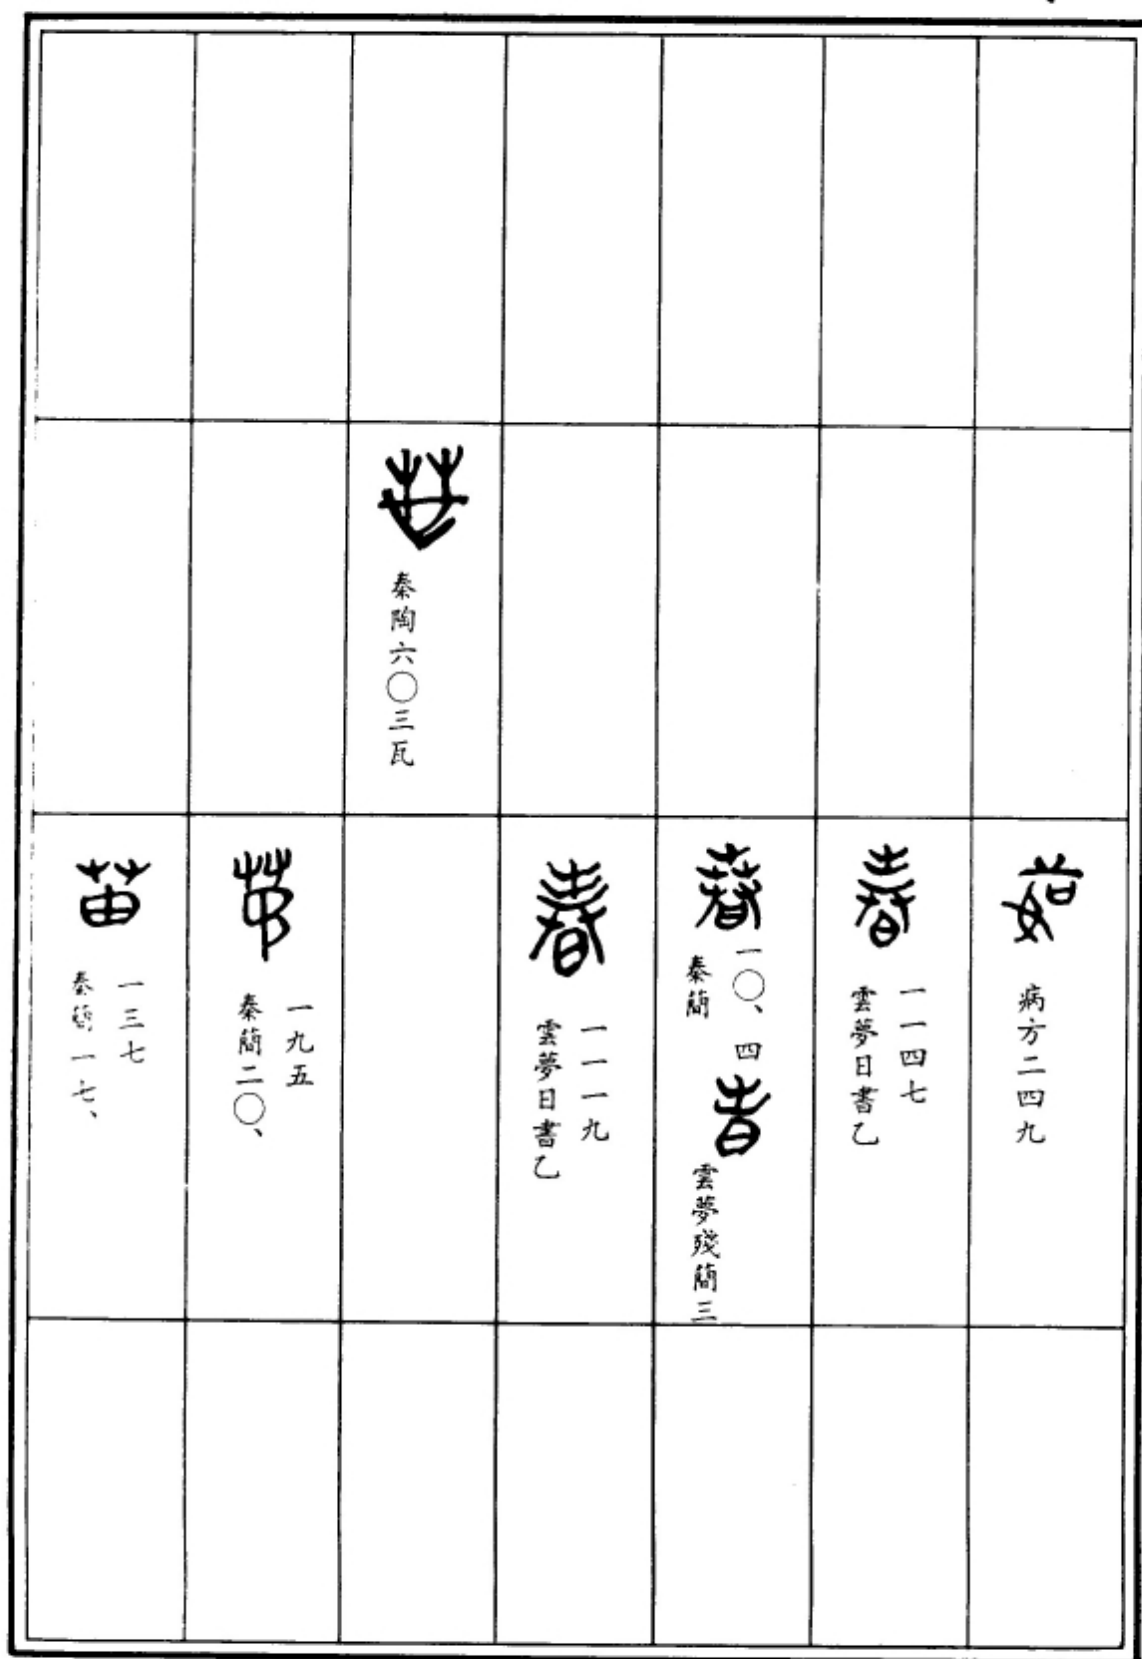 茹
病方二四九
春
雲夢日書乙
一一四七
春
秦簡
一〇、四
雲夢殘簡三
春
雲夢日書乙
一一一九
秦陶六〇三瓦
秦簡二〇、
一九五
苗
秦簡一七、
一三七